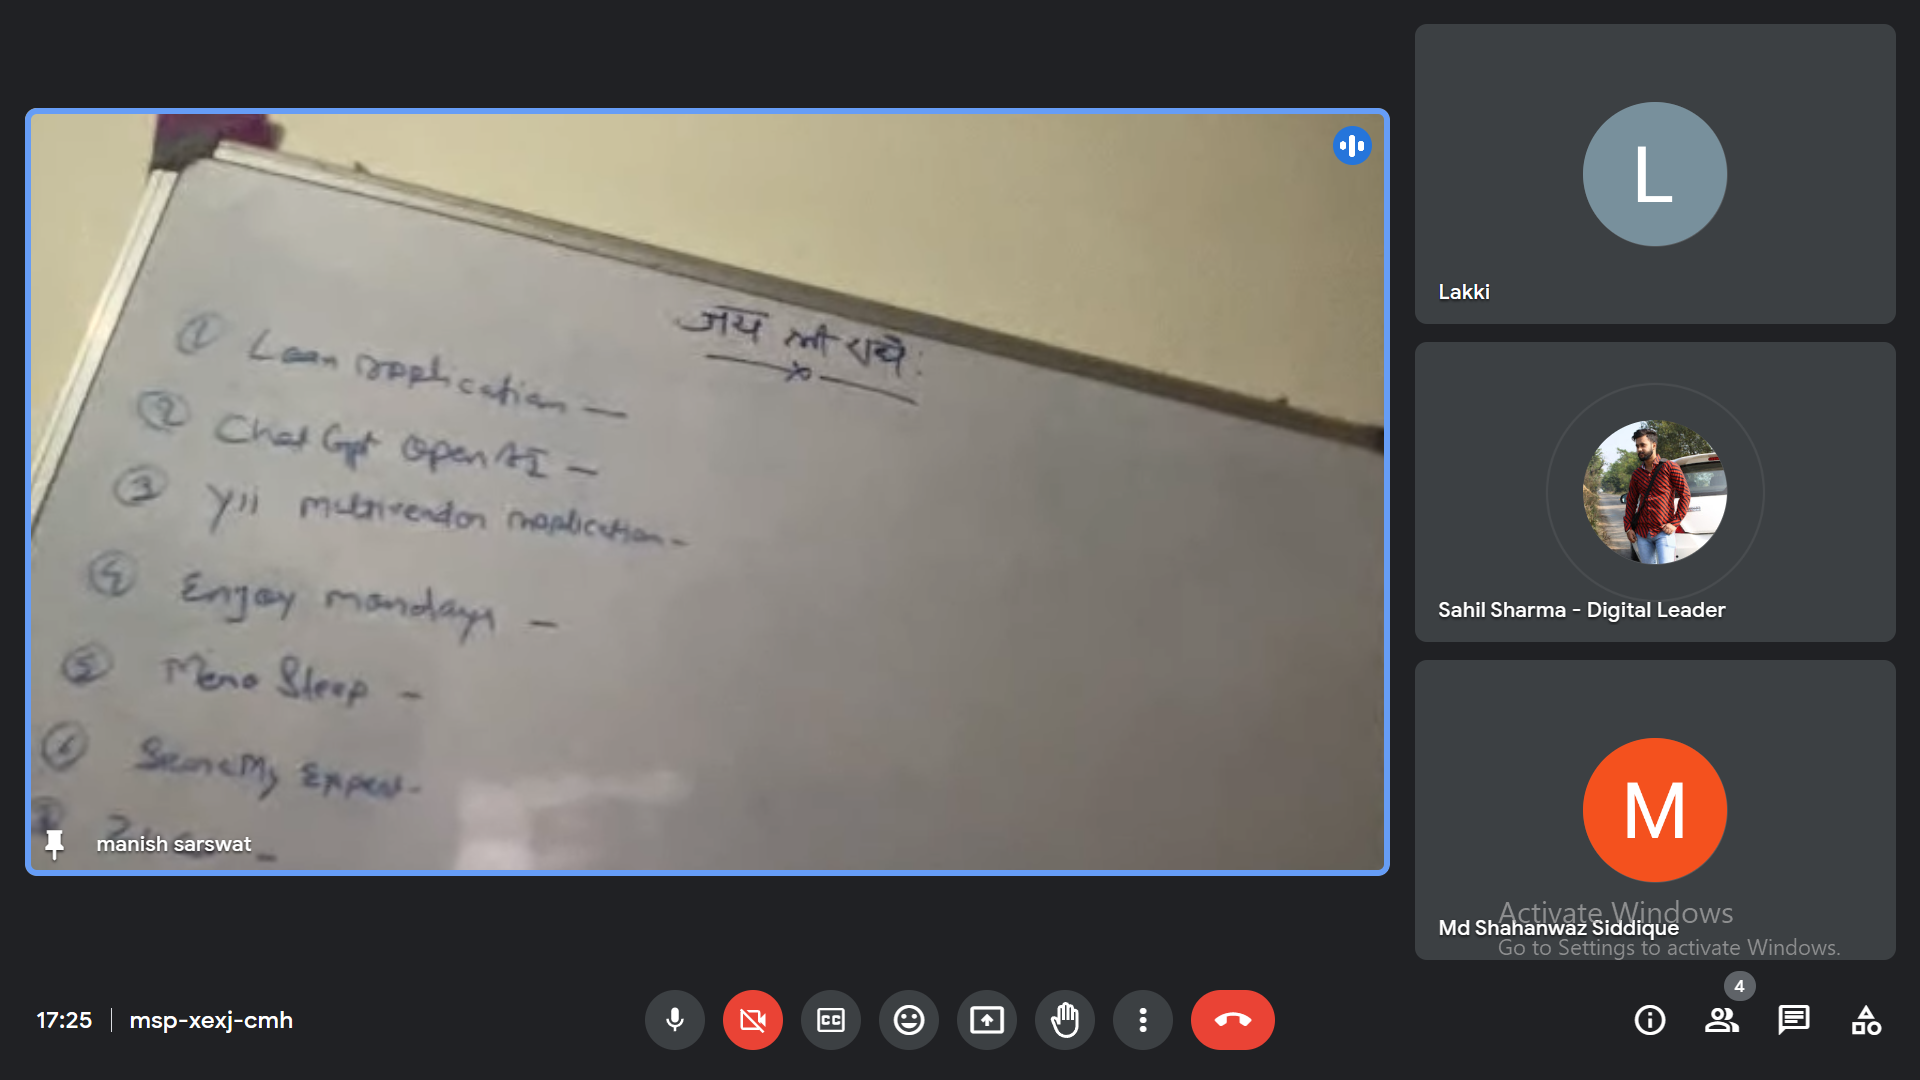 जय श्री राधे:
① Loan application —
② Chat Gpt Open AI —
③ Yii multivendor application -
④ Enjoy mondays —
⑤ Meno Sleep -
⑥ Expert-
manish sarswat
L
Lakki
Sahil Sharma - Digital Leader
M
Md Shahanwaz Siddique
Activate Windows
Go to Settings to activate Windows.
17:25 | msp-xexj-cmh
CC
4